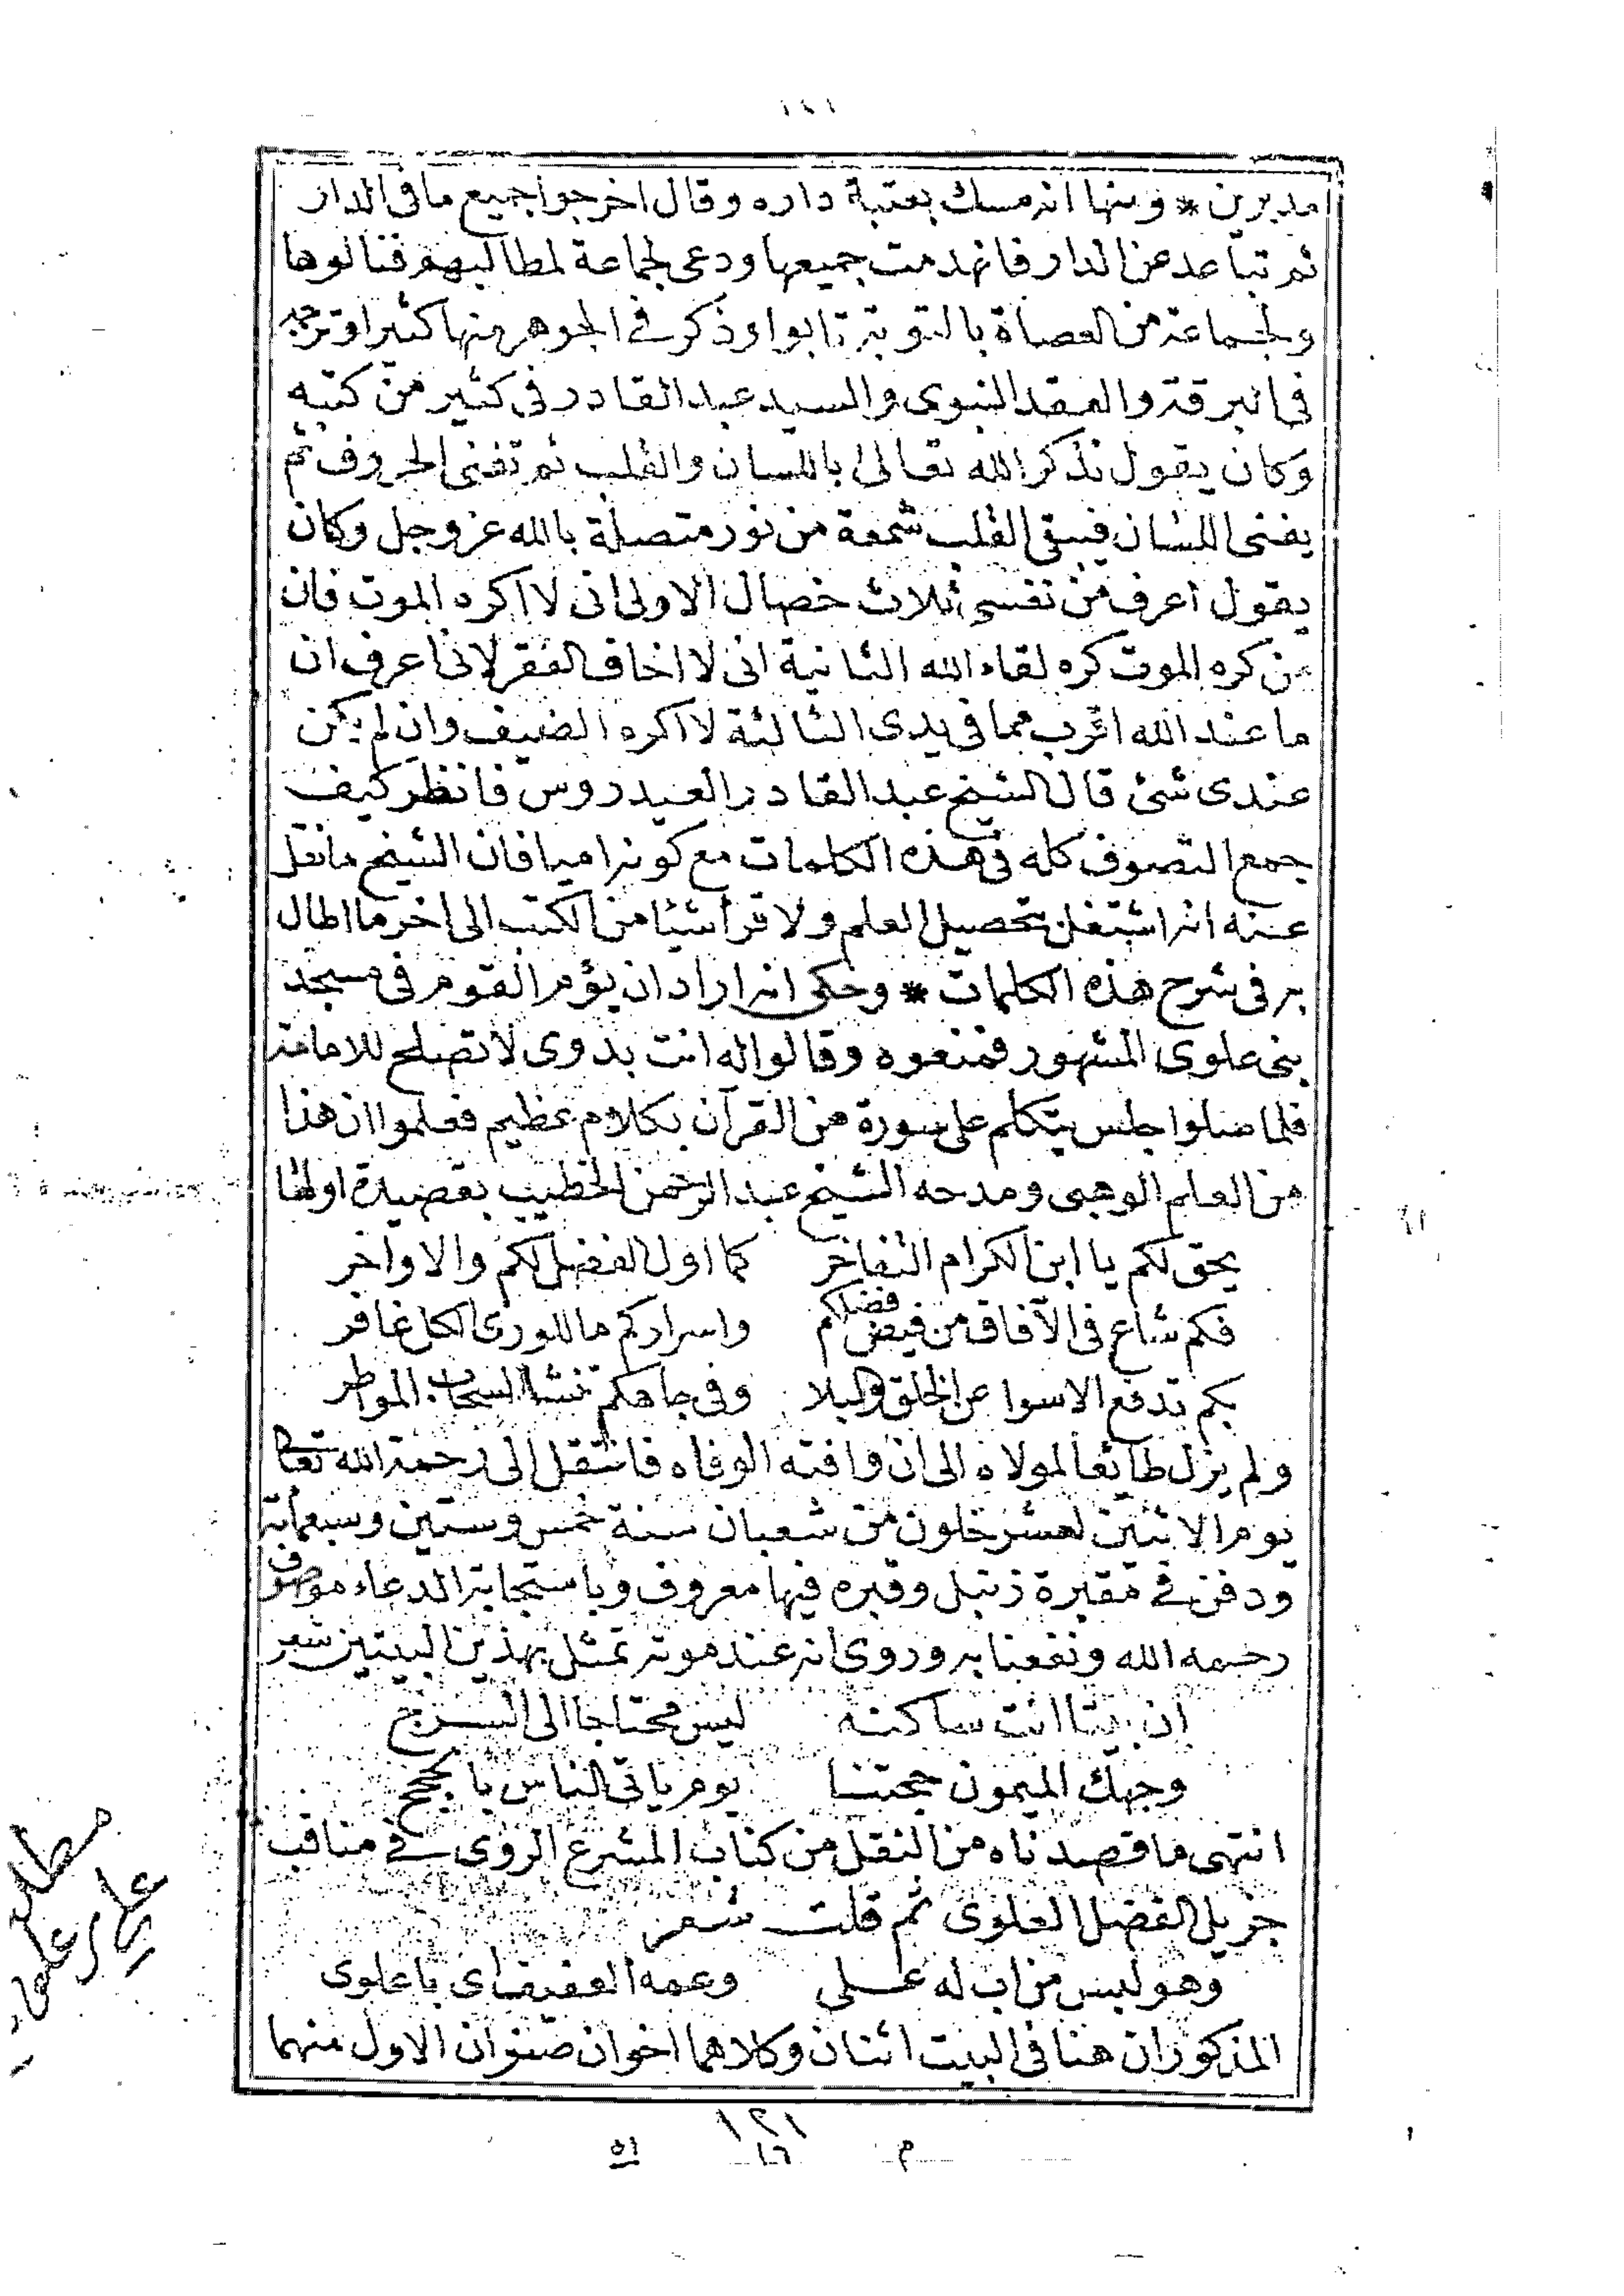 ١٢١
مدبرين * ومنها انه مسك بعتبة داره وقال اخرجوا جميع ما فى الدار
ثم تباعد عن الدار فانهدمت جميعها ودعى لجماعة لمطالبهم فنالوها
ولجماعة من العصاة بالتوبة تابوا وذكر فى الجوهر منها كثيرا وترجمه
فى البرقة والعقد النبوى والسيد عبد القادر فى كثير من كتبه
وكان يقول نذكر الله تعالى باللسان والقلب ثم تفنى الحروف ثم
يفنى اللسان فيبقى القلب شمعة من نور متصلة بالله عز وجل وكان
يقول اعرف من نفسى ثلاث خصال الاولى انى لا اكره الموت فان
من كره الموت كره لقاء الله الثانية انى لا اخاف الفقر لانى اعرف ان
ما عند الله اقرب مما فى يدى الثالثة لا اكره الضيف وان لم يكن
عندى شئ قال الشيخ عبد القادر العيدروس فانظر كيف
جمع التصوف كله فى هذه الكلمات مع كونه اميا فان الشيخ ما نقل
عنه انه اشتغل بتحصيل العلم ولا قرأ شيئا من الكتب الى اخر ما اطال
به فى شرح هذه الكلمات * وحكى انه اراد ان يؤم القوم فى مسجد
بنى علوى المشهور فمنعوه وقالوا له انت بدوى لا تصلح للامامة
فلما صلوا جلس يتكلم على سورة من القرآن بكلام عظيم فعلموا ان هذا
من العلم الوهبى ومدحه الشيخ عبد الرحمن الخطيب بقصيدة اولها
يحق لكم يا ابن الكرام التفاخر كما اول الفضل لكم والاواخر
فكم شاع فى الآفاق من فيض فضلكم واسراركم ما للورى الكل غافر
بكم تدفع الاسوا عن الخلق والبلا وفى جاهكم تنشا السحاب المواطر
ولم يزل طائعا لمولاه الى ان وافته الوفاه فانتقل الى رحمة الله تعالى
يوم الاثنين لعشر خلون من شعبان سنة خمس وستين وسبعمائة
ودفن فى مقبرة زنبل وقبره فيها معروف وباستجابة الدعاء موصوف
رحمه الله ونفعنا به وروى انه عند موته تمثل بهذين البيتين شعر
ان بيتا انت ساكنه ليس محتاجا الى السرج
وجهك الميمون حجتنا يوم ياتى الناس بالحجج
انتهى ما قصدناه من النقل من كتاب المشرع الروى فى مناقب
جزيل الفضل العلوى ثم قلت شعر
وهو ليس من اب له على وعمه الفقيه اى با علوى
المذكوران هنا فى البيت اثنان وكلاهما اخوان صنوان الاول منهما
١٢١
م ١٦ ١٥